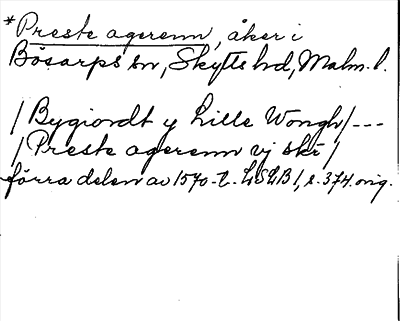 *Preste agerenn, åker i
Bösarps sn, Skytts hd, Malm. l.
/Bygiordt y Lille Wongh/---
/Preste agerenn vj skr/
förra delen av 1570-t. LSLB 1, s. 374. orig.